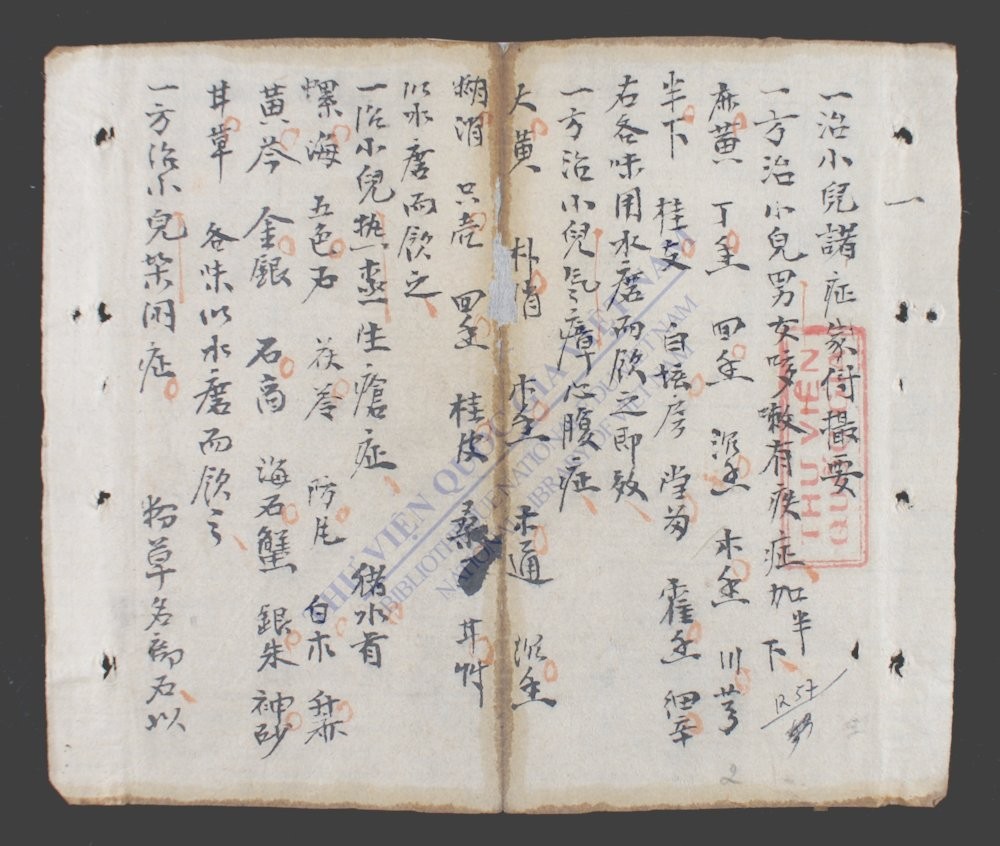 一
一治小兒諸症家付撮要
一方治小兒男女咳嗽有疾症加半下
麻黄 丁香 回香 沉香 木香 川芎
半下 桂支 自 房 当 藿香 細辛
右各味用水磨而飲之即效
一方治小兒气 心腹症
大黄 朴硝 木香 木通 沉香
硝 只壳 回香 桂皮 桑 甘艸
以水磨而飲之
一治小兒热 生瘡症 猪水
螺海 五色石 茯苓 防 白朮
黃芩 金銀 石膏 海石蟹 銀朱 神砂
甘草 各味以水磨而飲之
一方治小兒 症 粉草 石以
THƯ VIỆN QUỐC GIA VIỆT NAM
BIBLIOTHÈQUE NATIONALE DU VIETNAM
NATIONAL LIBRARY OF VIETNAM
THƯ VIỆN
QUỐC
2